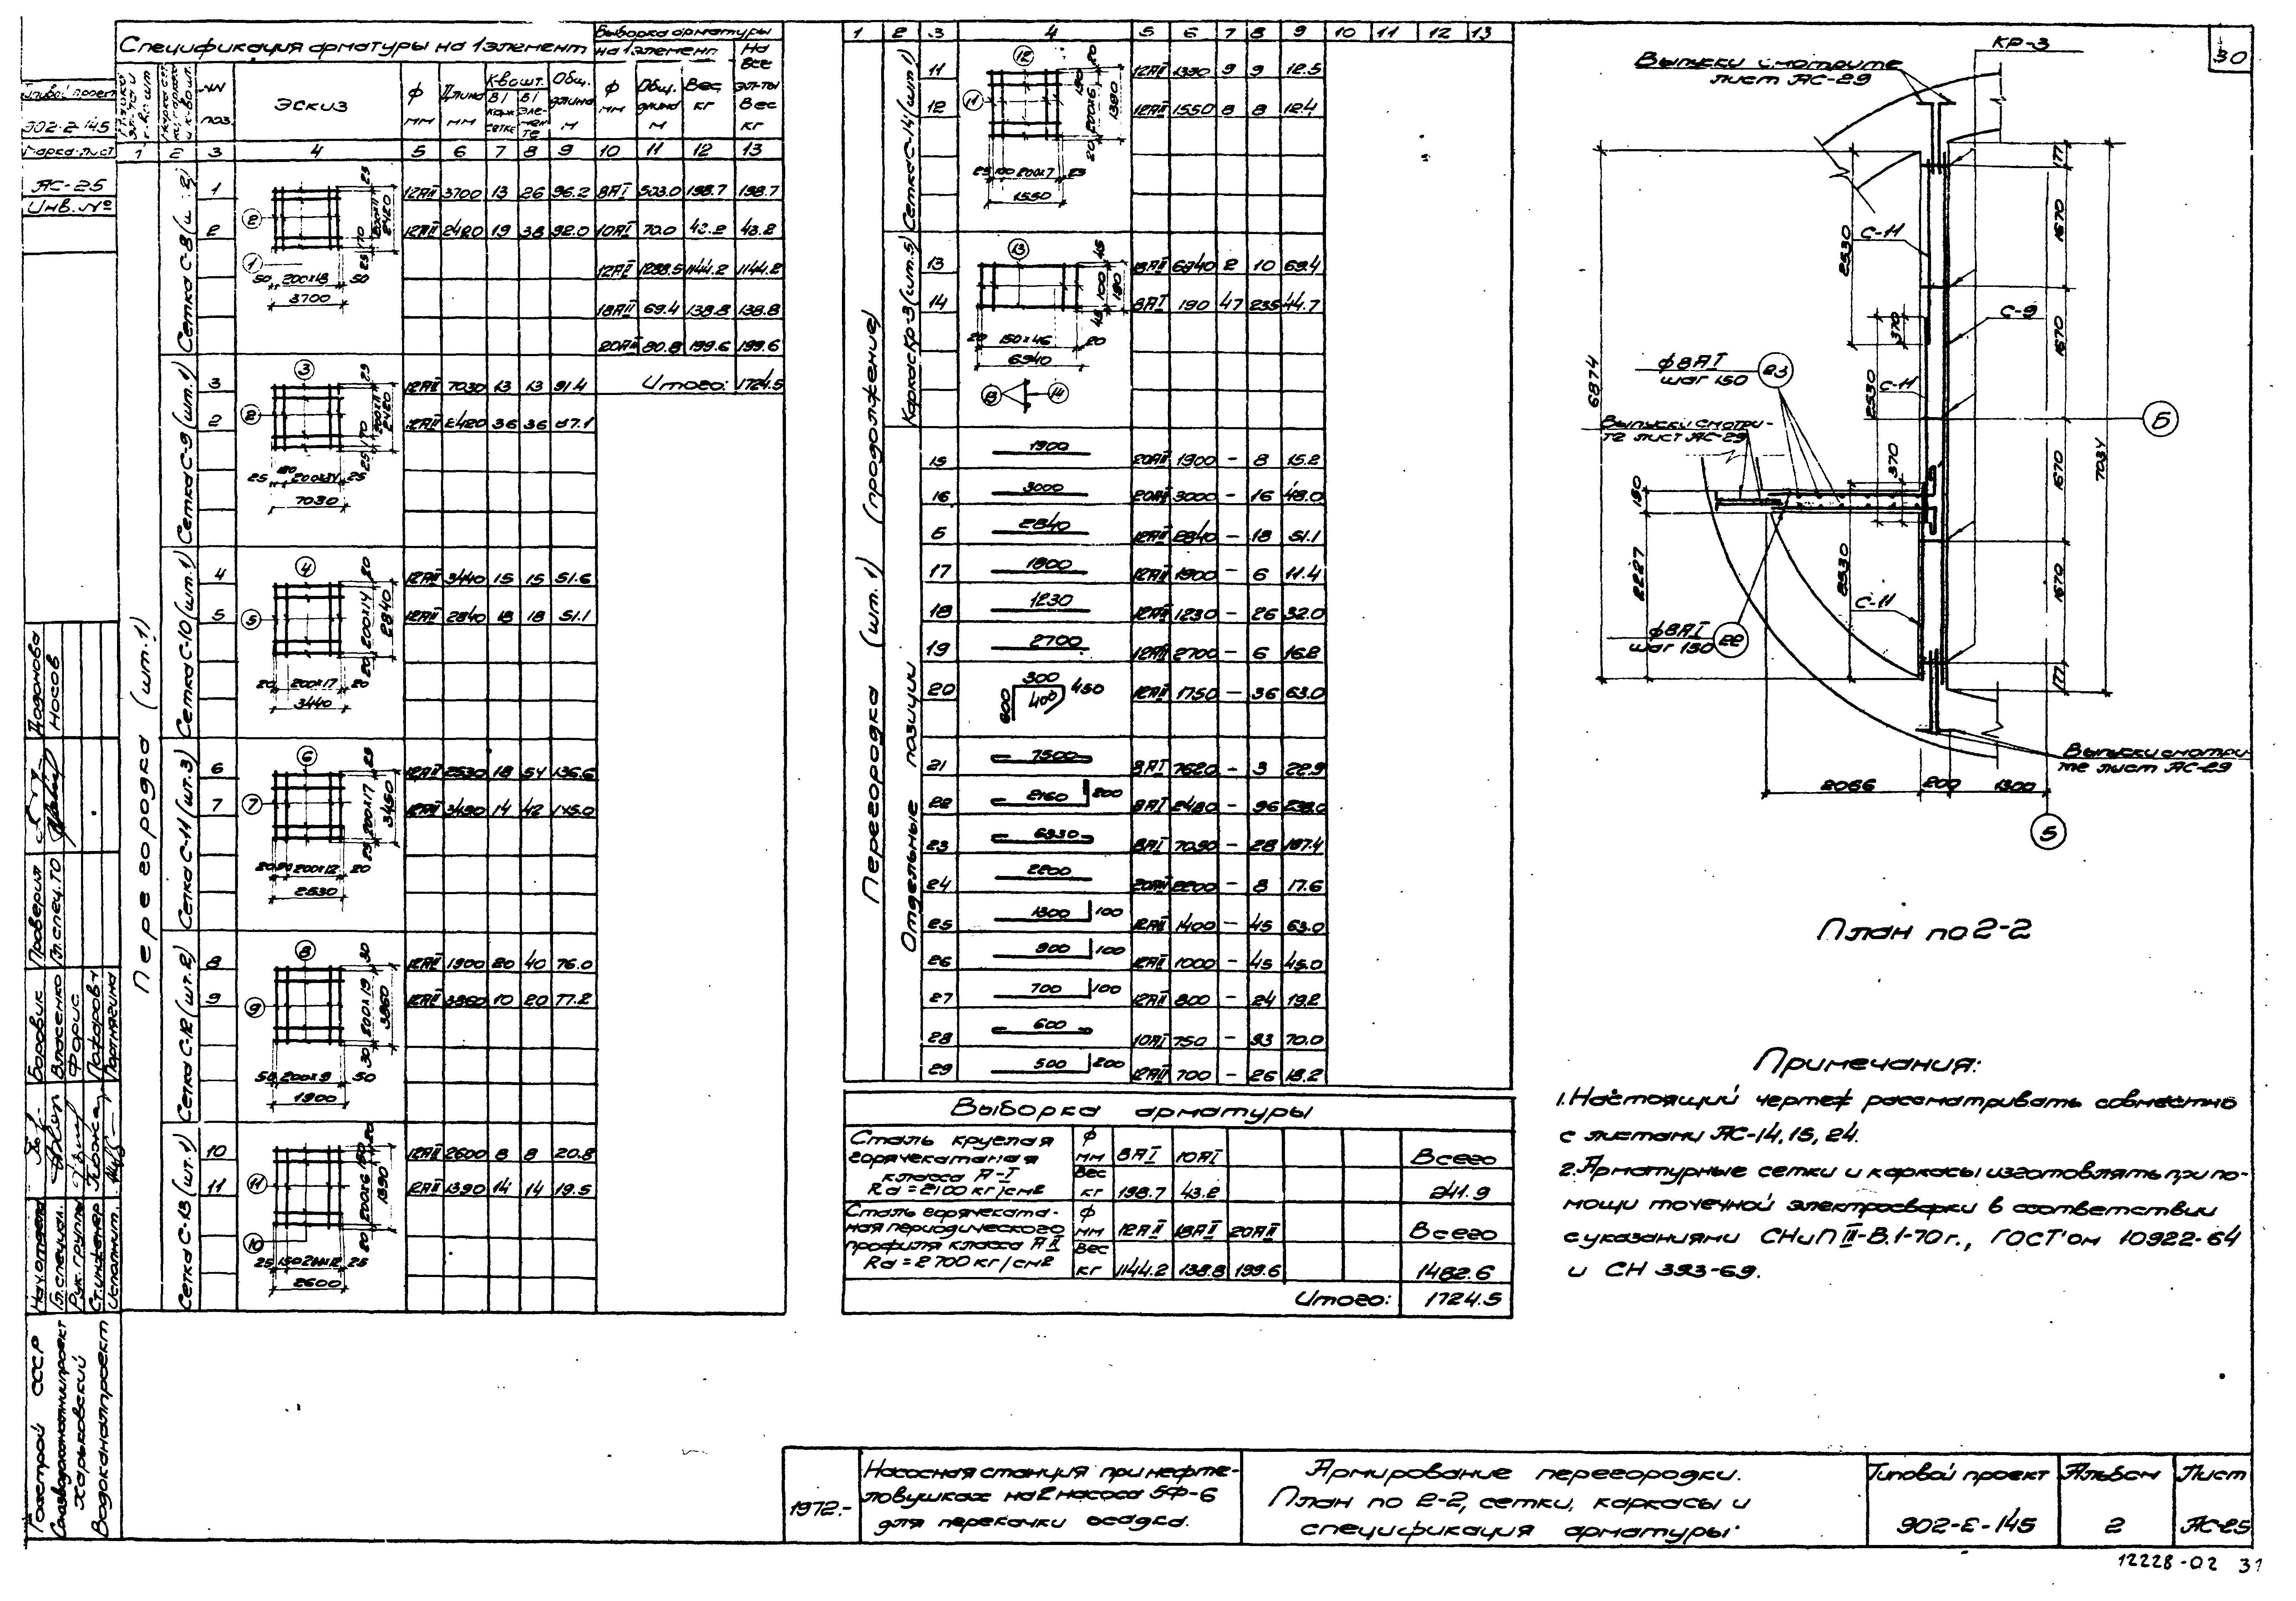 30
Типовой проект
902-2-145
Марка-лист
АС-25
Инв. №
Спецификация арматуры на 1 элемент
Выборка арматуры
на 1 элемент
На все эл-ты Вес кг
NN поз.
Эскиз
ф мм
Длина мм
К-во шт.
В 1 карк. сетке
В 1 элементе
Общ. длина м
ф мм
Общ. длина м
Вес кг
1 2 3 4 5 6 7 8 9 10 11 12 13
Перегородка (шт.1)
1 12АII 3700 13 26 96.2 8АI 503.0 198.7 198.7
2 12АII 2420 19 38 92.0 10АI 70.0 43.2 43.2
12АII 1288.5 1144.2 1144.2
18АII 69.4 138.8 138.8
20АII 80.8 199.6 199.6
Итого: 1724.5
2 1 25 200х11 2420 70 25
50 200х18 50
3700
Сетка С-9 (шт.1)
3 12АII 7030 13 13 91.4
2 12АII 2420 36 36 87.1
3 2 25 200х11 2420 70 25
25 180 200х34 25
7030
Сетка С-10 (шт.1)
4 12АII 3440 15 15 51.6
5 12АII 2840 18 18 51.1
4 5 20 200х14 2840 20
20 200х17 20
3440
Сетка С-11 (шт.3)
6 12АII 2530 18 54 136.6
7 12АII 3450 14 42 145.0
6 7 25 200х17 3450 25
20 90 200х12 20
2530
Сетка С-12 (шт.2)
8 12АII 1900 20 40 76.0
9 12АII 3860 10 20 77.2
8 9 30 200х19 3860 30
50 200х9 50
1900
Сетка С-13 (шт.1)
10 12АII 2600 8 8 20.8
11 12АII 1390 14 14 19.5
11 10 20 150 200х6 1390 20
25 150 200х12 25
2600
1 2 3 4 5 6 7 8 9 10 11 12 13
Перегородка (шт.1) (продолжение)
Сетка С-14 (шт.1)
11 12АII 1390 9 9 12.5
12 12АII 1550 8 8 12.4
12 11 20 150 200х6 1390 20
25 100 200х7 25
1550
Каркас Кр-3 (шт.5)
13 18АII 6940 2 10 69.4
14 8АI 190 47 235 44.7
13 45 100 190 45
20 150х46 20
6940
13 14
Отдельные позиции
15 1900 20АII 1900 - 8 15.2
16 3000 20АII 3000 - 16 48.0
5 2840 12АII 2840 - 18 51.1
17 1900 12АII 1900 - 6 11.4
18 1230 12АII 1230 - 26 32.0
19 2700 12АII 2700 - 6 16.2
20 300 600 400 450 12АII 1750 - 36 63.0
21 7500 8АI 7620 - 3 22.9
22 2160 200 8АI 2480 - 96 238.0
23 6930 8АI 7030 - 28 197.4
24 2200 20АII 2200 - 8 17.6
25 1300 100 12АII 1400 - 45 63.0
26 900 100 12АII 1000 - 45 45.0
27 700 100 12АII 800 - 24 19.2
28 600 10АI 750 - 93 70.0
29 500 200 12АII 700 - 26 18.2
Выборка арматуры
Сталь круглая горячекатаная класса А-I
Rа = 2100 кг/см2
ф мм 8АI 10АI Всего
Вес кг 198.7 43.2 241.9
Сталь горячекатаная периодического профиля класса АII
Rа = 2700 кг/см2
ф мм 12АII 18АII 20АII Всего
Вес кг 1144.2 138.8 199.6 1482.6
Итого: 1724.5
КР-3
Выпуски смотрите
лист АС-29
С-11
С-9
С-11
С-11
ф8АI
шаг 150
23
Выпуски смотри-
те лист АС-29
ф8АI
шаг 150
22
Выпуски смотри-
те лист АС-29
6874
2530
370
2530
370
2530
190
2227
177
1670
1670
1670
1670
177
7034
2066 200 1300
Б
5
План по 2-2
Примечания:
1. Настоящий чертеж рассматривать совместно
с листами АС-14, 15, 24.
2. Арматурные сетки и каркасы изготовлять при по-
мощи точечной электросварки в соответствии
с указаниями СНиП III-В.1-70г., ГОСТ'ом 10922-64
и СН 393-69.
Госстрой СССР
Союзводоканалниипроект
Харьковский
Водоканалпроект
Нач. отдела Боровик Проверил Додонова
Гл. специал. Власенко Гл. спец. ТО Носов
Рук. группы Форис
Ст. инженер
Исполнит.
1972.-
Насосная станция при нефте-
ловушках на 2 насоса 5Ф-6
для перекачки осадка.
Армирование перегородки.
План по 2-2, сетки, каркасы и
спецификация арматуры.
Типовой проект
902-2-145
Альбом
2
Лист
АС-25
12228-02 31